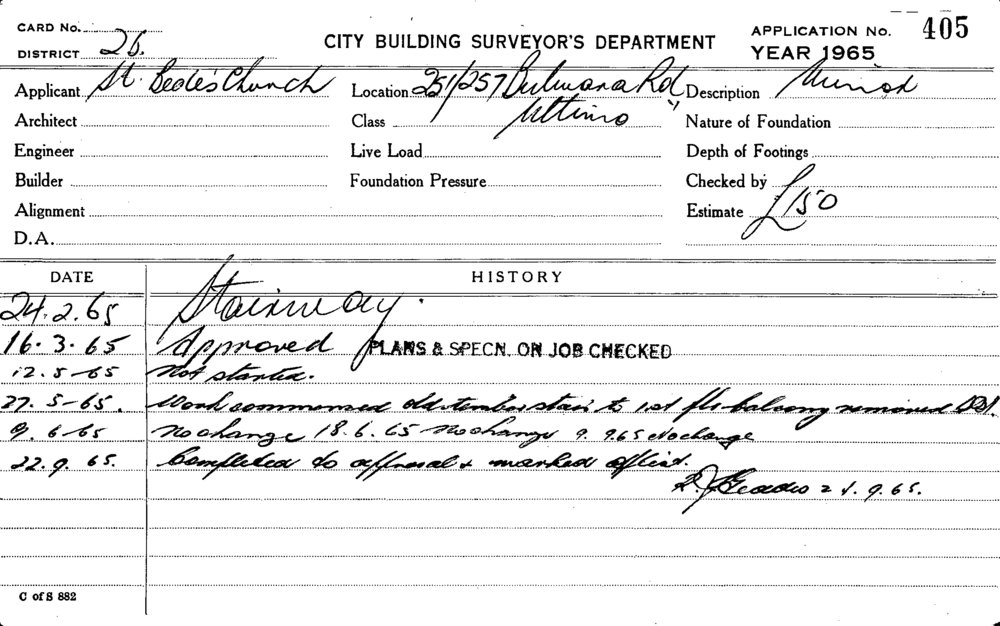 CARD No. CITY BUILDING SURVEYOR'S DEPARTMENT APPLICATION No. 405
DISTRICT 26. YEAR 1965
Applicant St. Bede's Church Location 251/257 Bulwara Rd Description Minor
Architect Class Ultimo Nature of Foundation
Engineer Live Load Depth of Footings
Builder Foundation Pressure Checked by
Alignment Estimate £150
D.A.
DATE HISTORY
24.2.65 Stairway.
16.3.65 Approved PLANS & SPECN. ON JOB CHECKED
12.5-65 Not started.
27.5-65. Work commenced old timber stair to 1st flr balcony removed
9.6-65 No change 18.6.65 No change 9.9.65 No change
22.9.65. Completed to approval & marked off list.
9.65.
C of S 882